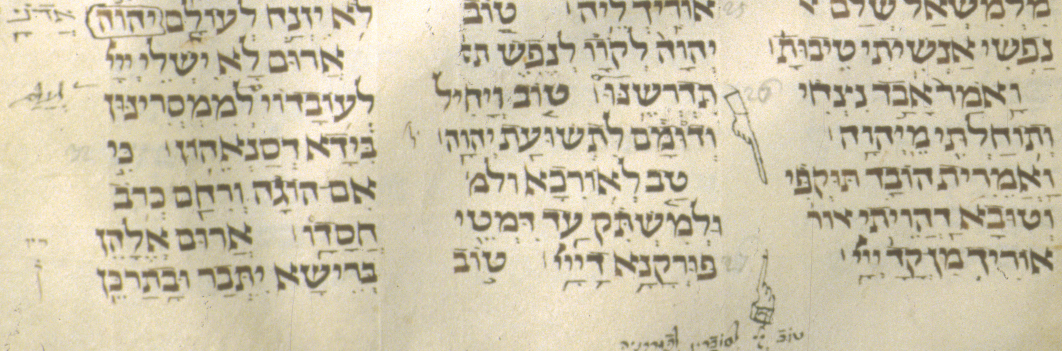 מלמשאל שלם
נפשי אנשיתי טיבותא
ואמר אבד נצחי
ותוחלתי מיהוה
ואמרית הובד תוקפי
וטובא דהויתי אור
אוריך מן קד ייי
אוריך ליה טוב
יהוה לקוו לנפש ת
תדרשנו טוב ויחיל
ודומם לתשועת יהוה
טב לאורכא ולמ
ולמשתק עד דמטי
פורקנא דייי טוב
לא יזנח לעולם יהוה
ארום לא ישלי ייי
לעובדוי לממסרינון
בידא דסנאהון כי
אם הוגה ורחם כרב
חסדו ארום אלהן
ברישא יתבר ובתרכן
אדני
25
26
27
טוב